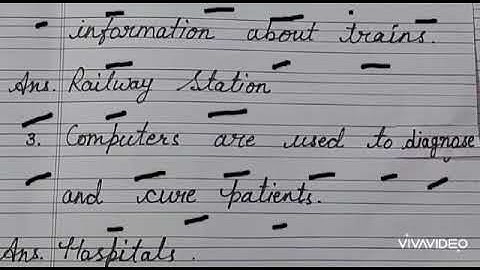 information about trains.
Ans. Railway Station
3. Computers are used to diagnose
and cure patients.
Ans. Hospitals.
VIVAVIDEO